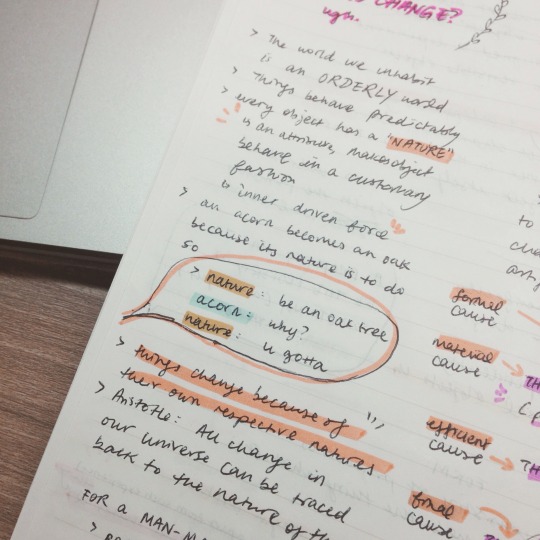 CHANGE?
ugh.
> The world we inhabit
is an ORDERLY world
> Things behave predictably
> every object has a "NATURE"
↳ is an attribute, makes object
behave in a customary
fashion
↳ inner driven force
> an acorn becomes an oak
because its nature is to do
so
> nature: be an oak tree
acorn: why?
nature: u gotta
> things change because of
their own respective natures
> Aristotle: All change in
our universe can be traced
back to the nature of th
FOR A MAN-MA
>
to
cha
formal
cause
material
cause → TH
efficient
cause → TH
final
cause